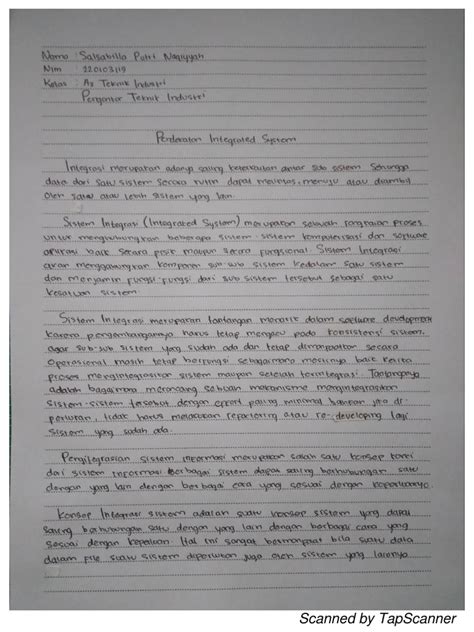 Nama : Salsabilla Putri Naqiyyah
Nim : 220103119
Kelas : A2 Teknik Industri
Pengantar Teknik Industri
Pendekatan Integrated System
Integrasi merupakan adanya saling keterkaitan antar sub sistem sehingga
data dari satu sistem secara rutin dapat melintas, menuju atau diambil
oleh satu atau lebih sistem yang lain.
Sistem Integrasi (Integrated System) merupakan sebuah rangkaian proses
untuk menghubungkan beberapa sistem-sistem komputerisasi dan software
aplikasi baik secara fisik maupun secara fungsional. Sistem Integrasi
akan menggabungkan komponen sub-sub sistem kedalam satu sistem
dan menjamin fungsi-fungsi dari sub sistem tersebut sebagai satu
kesatuan sistem
Sistem Integrasi merupakan tantangan menarik dalam software development
karena pengembangannya harus tetap mengacu pada konsistensi sistem,
agar sub-sub sistem yang sudah ada dan tetap dimanfaatkan secara
operasional masih tetap berfungsi sebagaimana mestinya baik ketika
proses mengintegrasikan sistem maupun setelah terintegrasi. Tantangannya
adalah bagaimana merancang sebuah mekanisme mengintegrasikan
sistem-sistem tersebut dengan effort paling minimal bahkan jika di-
perlukan, tidak harus melakukan refactoring atau re-developing lagi
sistem yang sudah ada.
Pengintegrasian sistem informasi merupakan salah satu konsep kunci
dari sistem informasi berbagai sistem dapat saling berhubungan satu
dengan yang lain dengan berbagai cara yang sesuai dengan keperluannya.
Konsep Integrasi sistem adalah suatu konsep sistem yang dapat
saling berhubungan satu dengan yang lain dengan berbagai cara yang
sesuai dengan keperluan. Hal ini sangat bermanfaat bila suatu data
dalam file suatu sistem diperlukan juga oleh sistem yang lainnya
Scanned by TapScanner